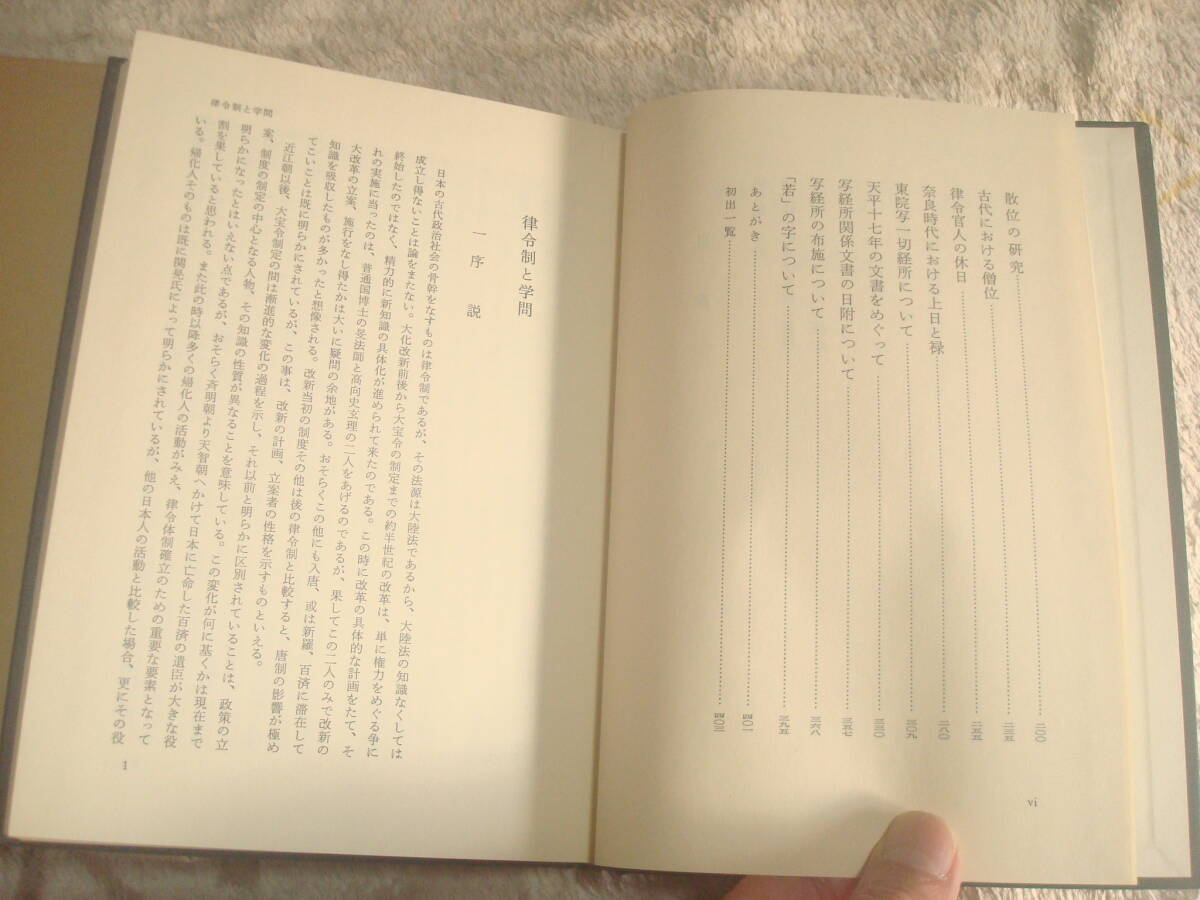 散位の研究……二〇〇
古代における僧位……二三五
律令官人の休日……二五五
奈良時代における上日と禄……二八〇
東院写一切経所について……三〇九
天平十七年の文書をめぐって……三三〇
写経所関係文書の日附について……三五七
写経所の布施について……三六八
「若」の字について……三九五
あとがき……四〇一
初出一覧……四〇三
vi
律令制と学問
律令制と学問
一 序 説
日本の古代政治社会の骨幹をなすものは律令制であるが、その法源は大陸法であるから、大陸法の知識なくしては
成立し得ないことは論をまたない。大化改新前後から大宝令の制定までの約半世紀の改革は、単に権力をめぐる争に
終始したのではなく、精力的に新知識の具体化が進められて来たのである。この時に改革の具体的な計画をたて、そ
れの実施に当ったのは、普通国博士の旻法師と高向史玄理の二人をあげるのであるが、果してこの二人のみで改新の
大改革の立案、施行をなし得たかは大いに疑問の余地がある。おそらくこの他にも入唐、或は新羅、百済に滞在して
知識を吸収したものが多かったと想像される。改新当初の制度その他は後の律令制と比較すると、唐制の影響が極め
てこいことは既に明らかにされているが、この事は、改新の計画、立案者の性格を示すものといえる。
近江朝以後、大宝令制定の間は漸進的な変化の過程を示し、それ以前と明らかに区別されていることは、政策の立
案、制度の制定の中心となる人物、その知識の性質が異なることを意味している。この変化が何に基くかは現在まで
明らかになったとはいえない点であるが、おそらく斉明朝より天智朝へかけて日本に亡命した百済の遺臣が大きな役
割を果していると思われる。また此の時以降多くの帰化人の活動がみえ、律令体制確立のための重要な要素となって
いる。帰化人そのものは既に関晃氏によって明らかにされているが、他の日本人の活動と比較した場合、更にその役
1